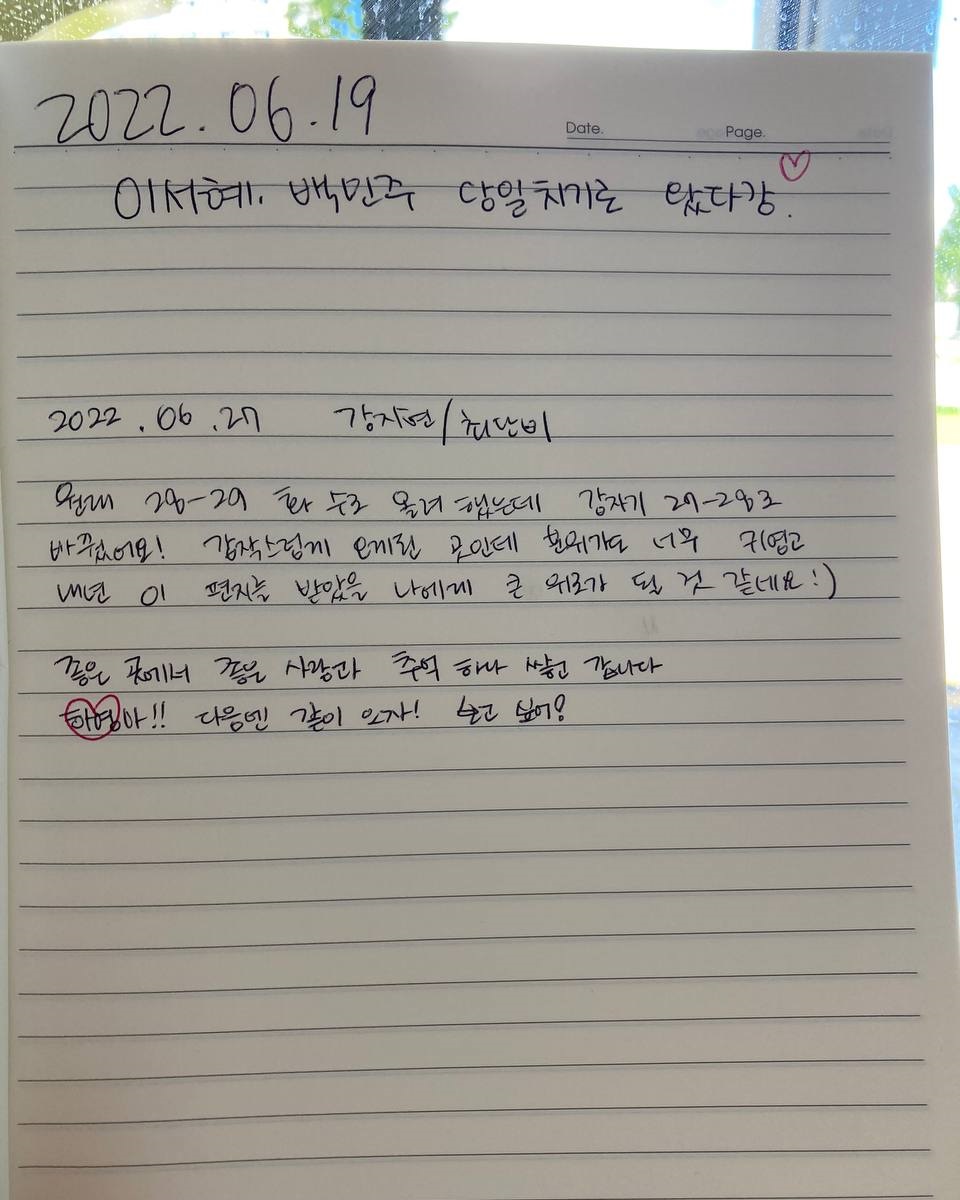 2022.06.19
Date.
Page.
이서혜. 백민주 당일치기로 왔다감.
2022.06.27 강지연/최단비
원래 28-29 화수로 올려 했는데 갑자기 27-28로
바꿨어요! 갑작스럽게 오게된 곳인데 분위기도 너무 귀엽고
내년 이 편지를 받았을 나에게 큰 위로가 될 것 같네요:)
좋은 곳에서 좋은 사람과 추억 하나 쌓고 갑니다
하영아!! 다음엔 같이 오자! 보고 싶어?